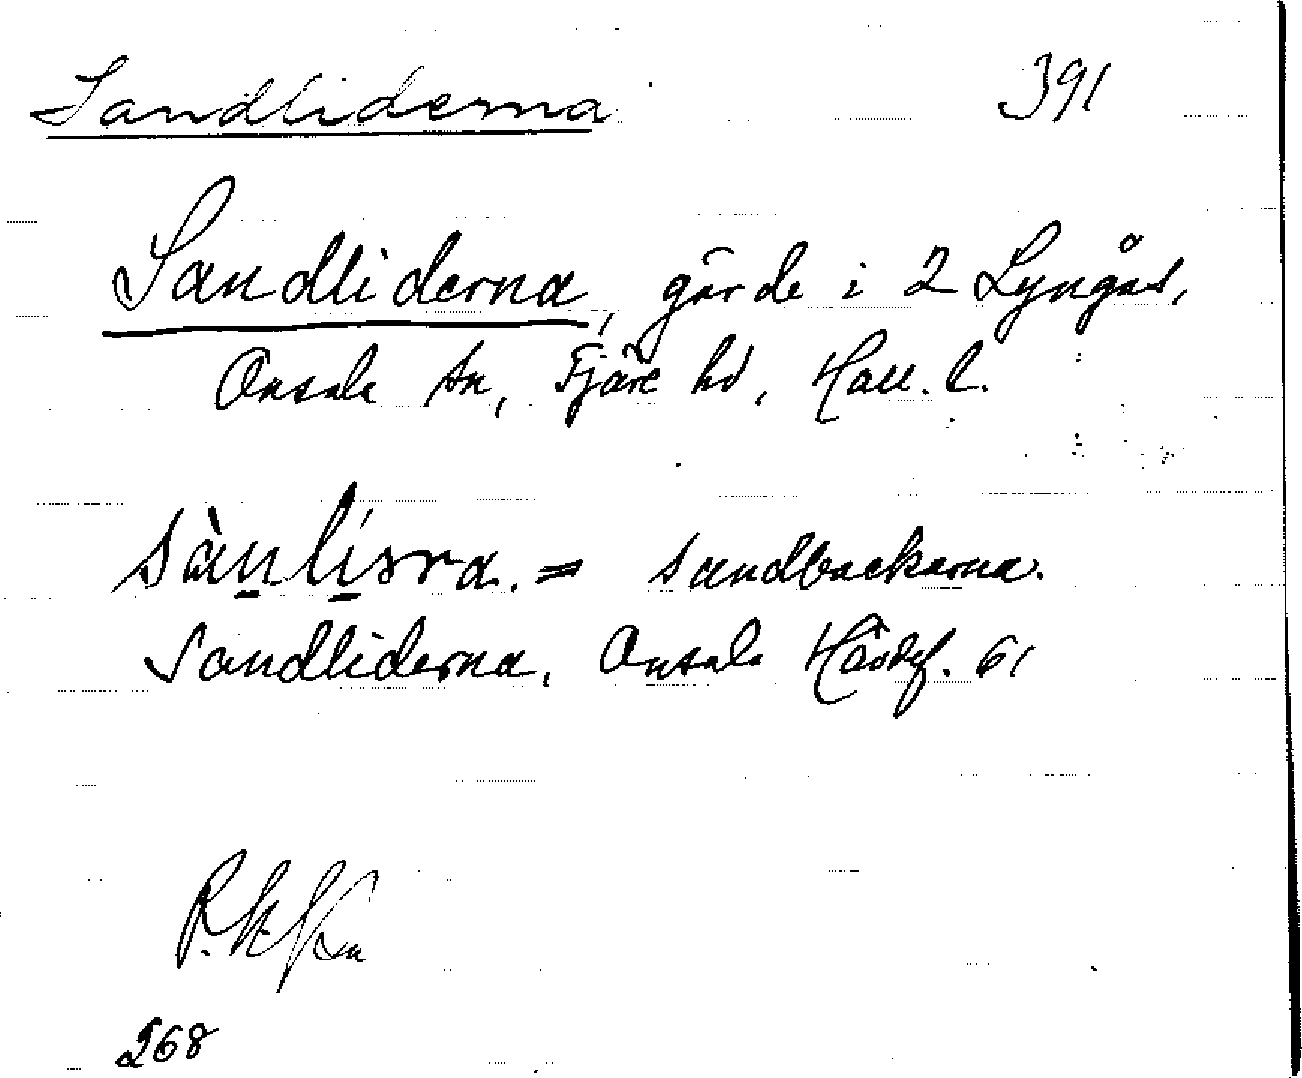 Sandliderna 391
Sandliderna, gärde i 2 Lyngås,
Onsala sn, Fjäre hd, Hall. l.
sàn̲lí̲sra. = sandbackarna.
Sandliderna, Onsala Hävdef. 61
268